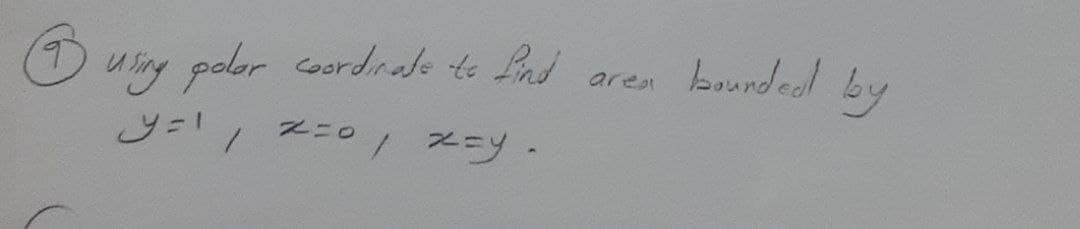 ① using polar coordinate to find area bounded by
y=1, x=0, x=y.